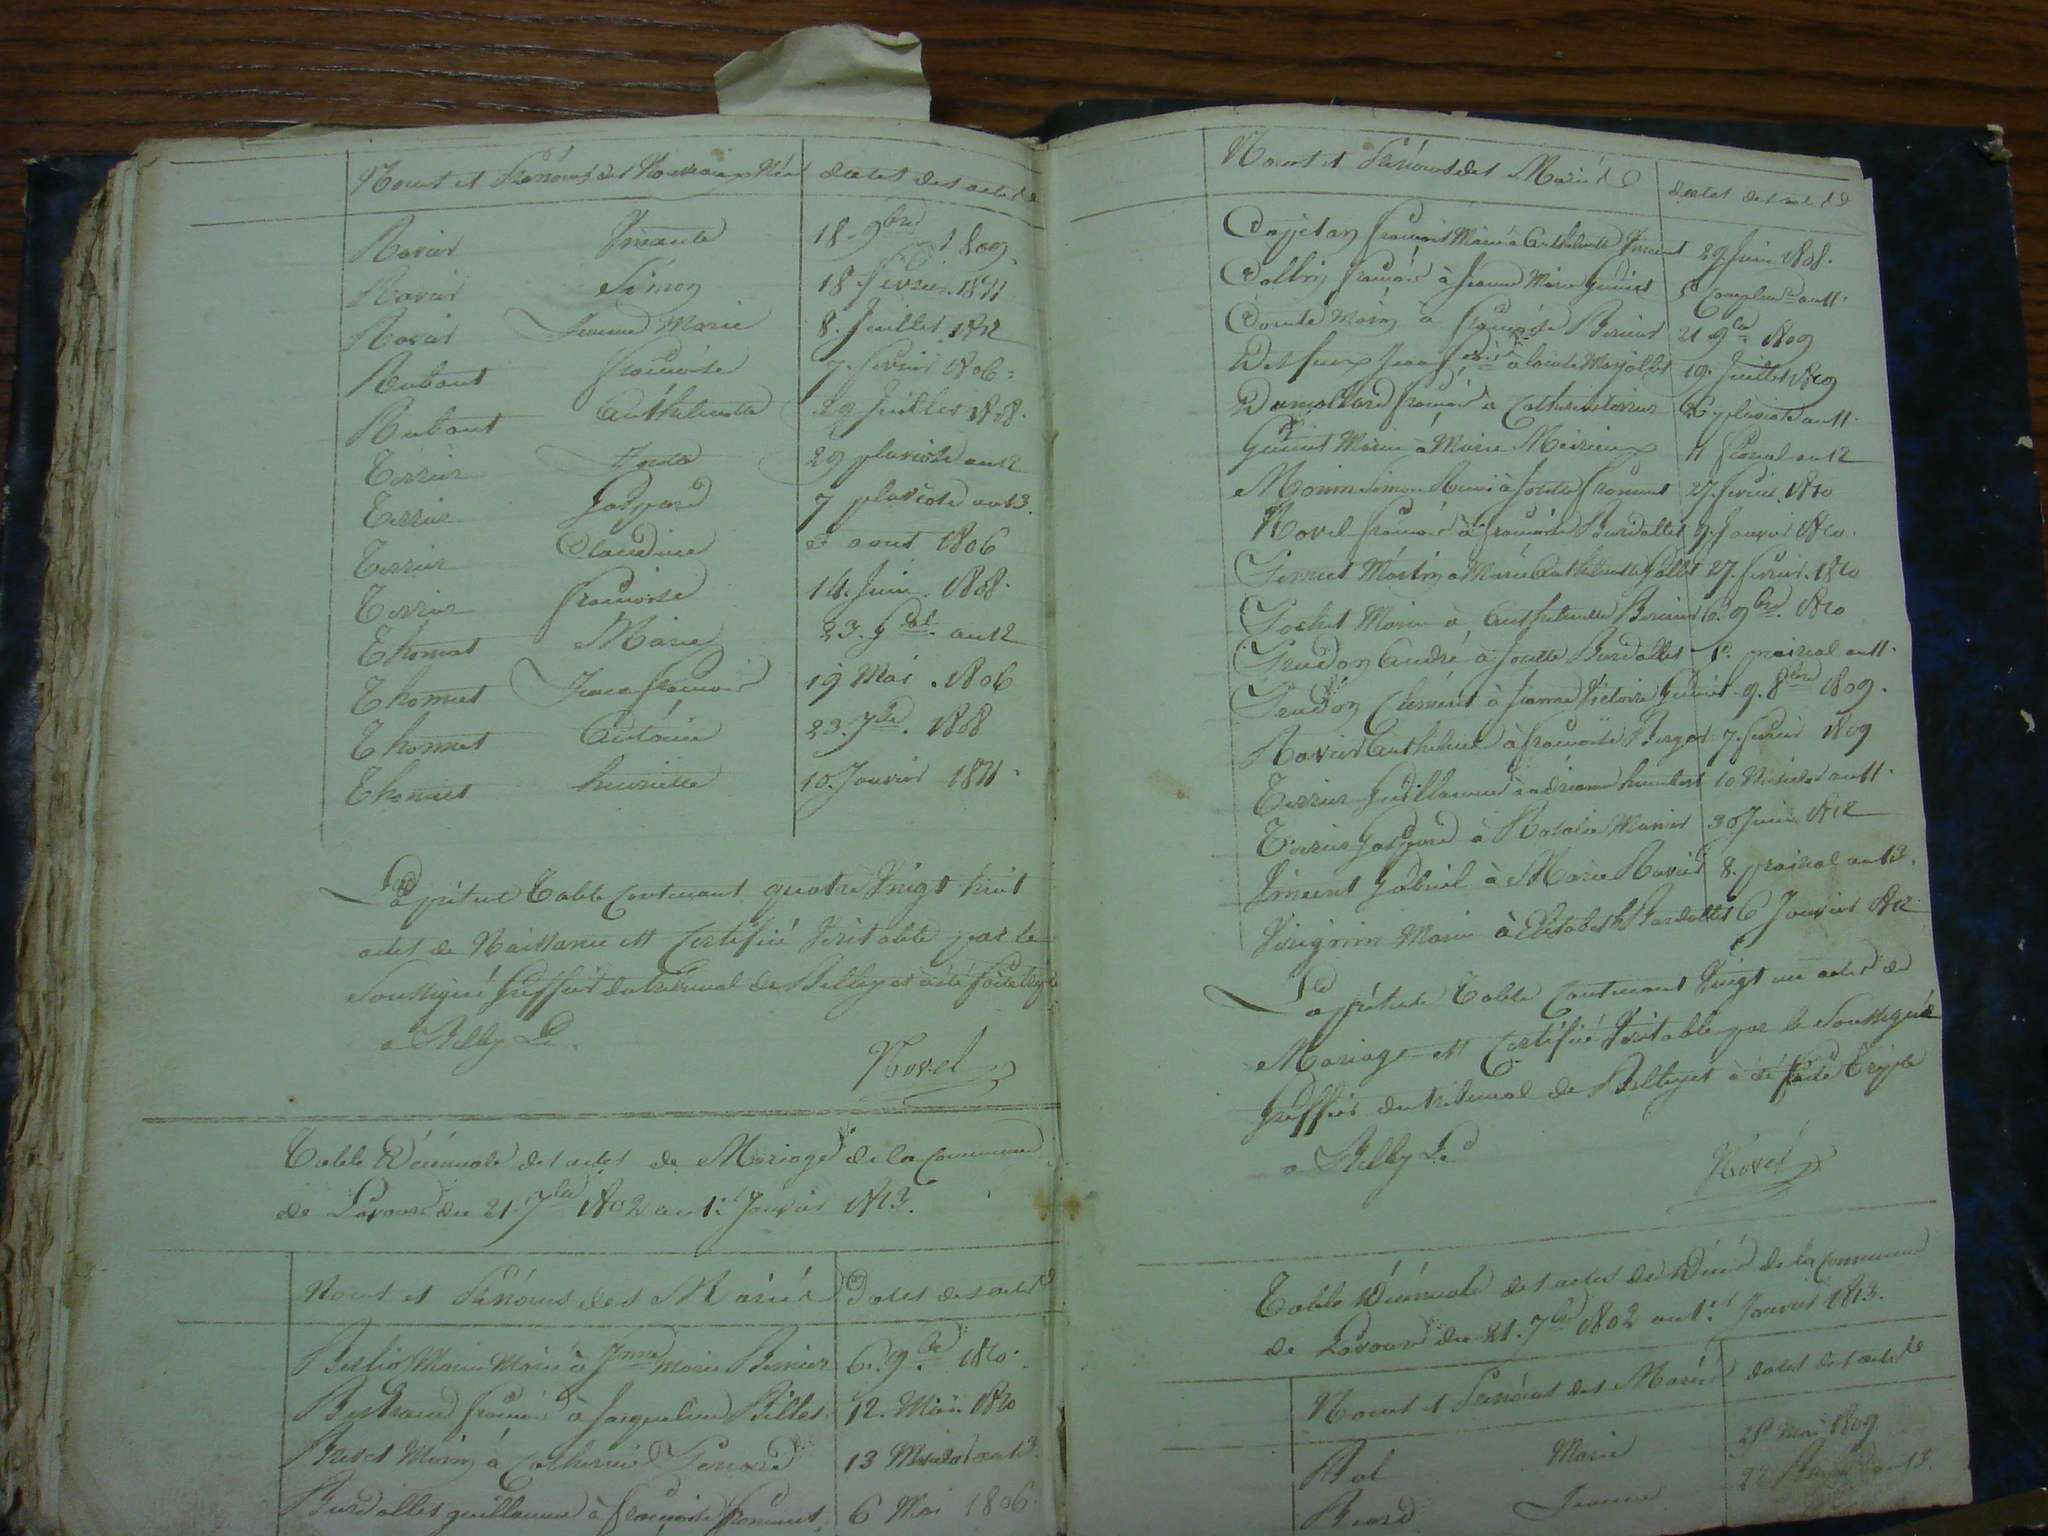 Noms et Prénoms des Nouveaux Nés dates des actes
Ravier Vincente 18. 9bre 1809
Ravier Simon 18. fevrier 1811
Ravier Jeanne Marie 8. Juillet 1812
Rubout françoise 7. fevrier 1806
Rubout Anthelmette 29 Juillet 1808.
Terrier 29 pluviose an 12
Terrier Gaspard 7 pluviose an 13.
Terrier Claudine aout 1806
Terrier françoise 14. Juin. 1808.
Thomet Marie 23. an 12
Thomet Jean françois 19 Mai. 1806
Thomet Antoine 23. 7bre. 1808
Thomet henriette 10. Janvier 1811.
La présente Table contenant quatre Vingt huit
actes de Naissance est Certifié Veritable par le
Soussigné Greffier du tribunal de Belley et a été faite triple
a Belley Le
Novel
Table Décennale des actes de Mariage de la Commune
de Lavour du 21. 7bre 1802 au 1er Janvier 1813.
Noms et Prénoms des Mariés Dates des actes
Marin Marié à Jnne Marie Bernier 6. 9bre 1810.
Bertrand françois à Jacqueline Billet 12. Mai 1810
à Catherine 13 Messidor an
Burdallet guillaume à françoise froment 6 Mai 1806.
Noms et Prénoms des Mariés dates des actes
françois Marié à Anthelmette Vincent 29 Juin 1808.
françois à Jeanne Marie Guinet 5e Complre an 11.
à françoise Bernier 21 9bre 1809
Jean à Louise Marjollet 19. Juillet 1809
Dumollard françois à Catherine Terrier 26 pluviose an 11.
Guinet Marin à Marie 11 floreal an 12
Simon Marié à Josette froment 27. fevrier. 1810
Novel françois à françoise Burdallet 9. Janvier 1810.
à Marie Anthelmette 27. fevrier. 1810
Pochet Marin à Anthelmette Bernier 6. 9bre. 1810
Prudon André à Josette Burdallet 1er prairial an 11.
Prudon Clément à Jeanne Victoire Guinet 9. 8bre 1809.
Ravier Anthelme à françoise Berger 7. fevrier 1809
Terrier Guillaume à adrianne humbert 10 Messidor an 11.
Terrier Gaspard à Rosalie 30 Juin 1812
Vincent Gabriel à Marie Ravier 8. prairial an 13.
Marin à Elisabeth Burdallet 6 Janvier 1812.
La présente Table contenant Vingt un actes de
Mariage est Certifié Veritable par le Soussigné
Greffier du tribunal de Belley et a été faite Triple
a Belley Le
Novel
Table Décennale des actes de Décès de la Commune
de Lavour du 21. 7bre 1802 au 1er Janvier 1813.
Noms et Prénoms des Mariés dates des actes
Bal Marie 28 Mai 1809
Jeanne 22 an 13.